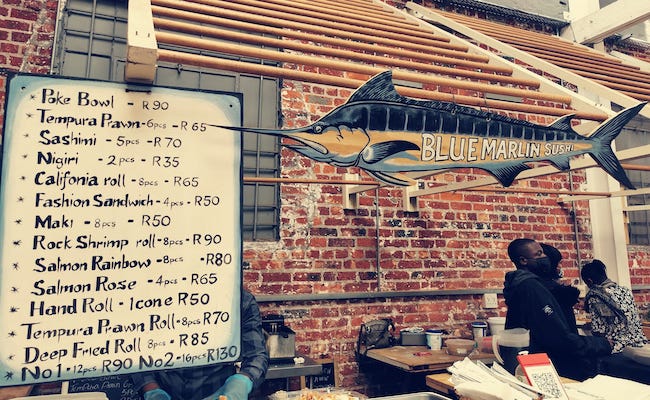 * Poke Bowl - R90
* Tempura Prawn - 6pcs - R65
* Sashimi - 5pcs - R70
* Nigiri - 2pcs - R35
* Califonia roll - 8pcs - R65
* Fashion Sandwich - 4pcs - R50
* Maki - 8pcs - R50
* Rock Shrimp roll - 8pcs - R90
* Salmon Rainbow - 8pcs - R80
* Salmon Rose - 4pcs - R65
* Hand Roll - 1cone R50
* Tempura Prawn Roll - 8pcs R70
* Deep Fried Roll 8pcs - R85
* No1 - 12pcs R90 No2 - 16pcs R130
BLUE MARLIN SUSHI